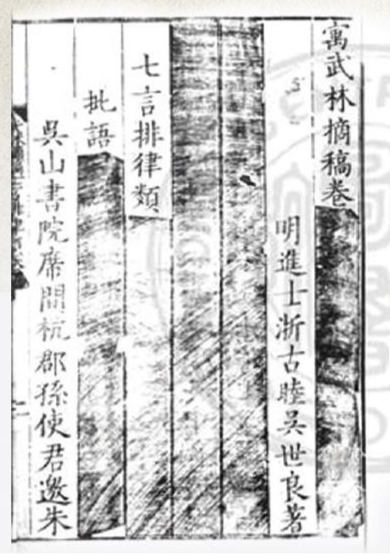 寓武林摘稿卷
明進士浙古睦吳世良著
七言排律類
批語
吳山書院席間杭郡孫使君邀朱